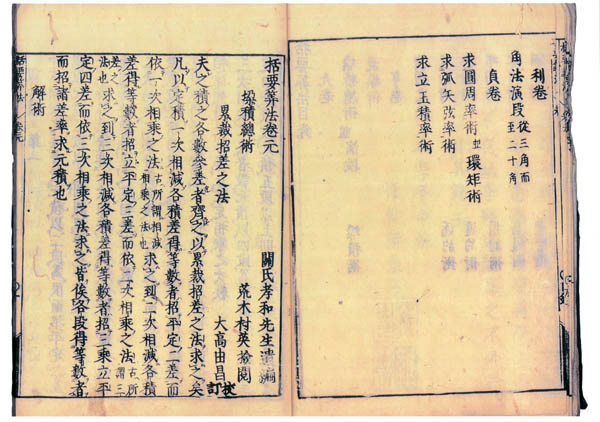 利卷
角法演段 從三角而至二十角
貞卷
求圓周率術 並 環矩術
求弧矢弦率術
求立玉積率術
括要筭法卷元
關氏孝和先生遺編
垜積總術 荒木村英檢閱
累裁招差之法 大高由昌校訂
夫之積之各數參差者齊之以累裁招差之法求之矣
凡以定積一次相減各積差得等數者招平定二差而
依一次相乘之法 古所謂相減相乘之法也 求之到二次相減各積
差得等數者招立平定三差而依二次相乘之法 古所謂三
差之法也 求之到三次相減各積差得等數者招三乘立平
定四差而依三次相乘之法求之皆俟各段得等數者
而招諸差率求元積也
解術